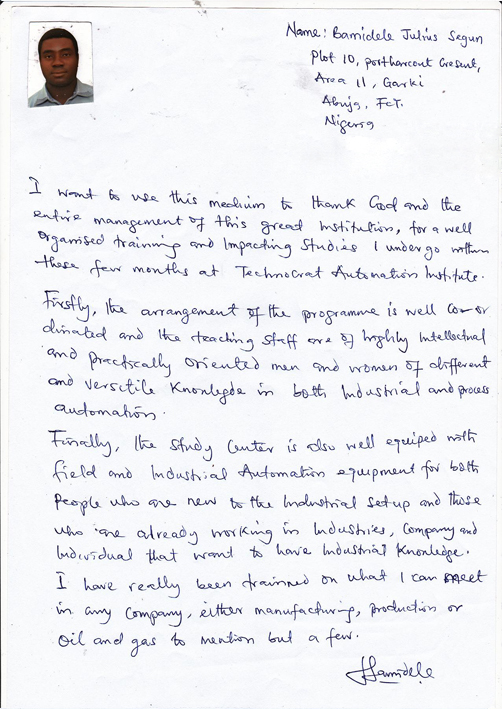 Name: Bamidele Julius Segun
Plot 10, portharcourt Cresent,
Area 11, Garki
Abuja, FCT.
Nigeria
I want to use this medium to thank God and the
entire management of this great Institution, for a well
Organised training and Impacting Studies I undergo within
these few months at Technocrat Automation Institute.
Firstly, the arrangement of the programme is well co-or
dinated and the teaching staff are of highly Intellectual
and practically oriented men and women of different
and versatile Knowlegde in both Industrial and process
automation.
Finally, the study Center is also well equiped with
field and Industrial Automation equipment for both
people who are new to the Industrial setup and those
who are already working in Industries, Company and
Individual that want to have Industrial Knowledge.
I have really been trainned on what I can meet
in any Company, either manufacturing, production or
Oil and gas to mention but a few.
Bamidele